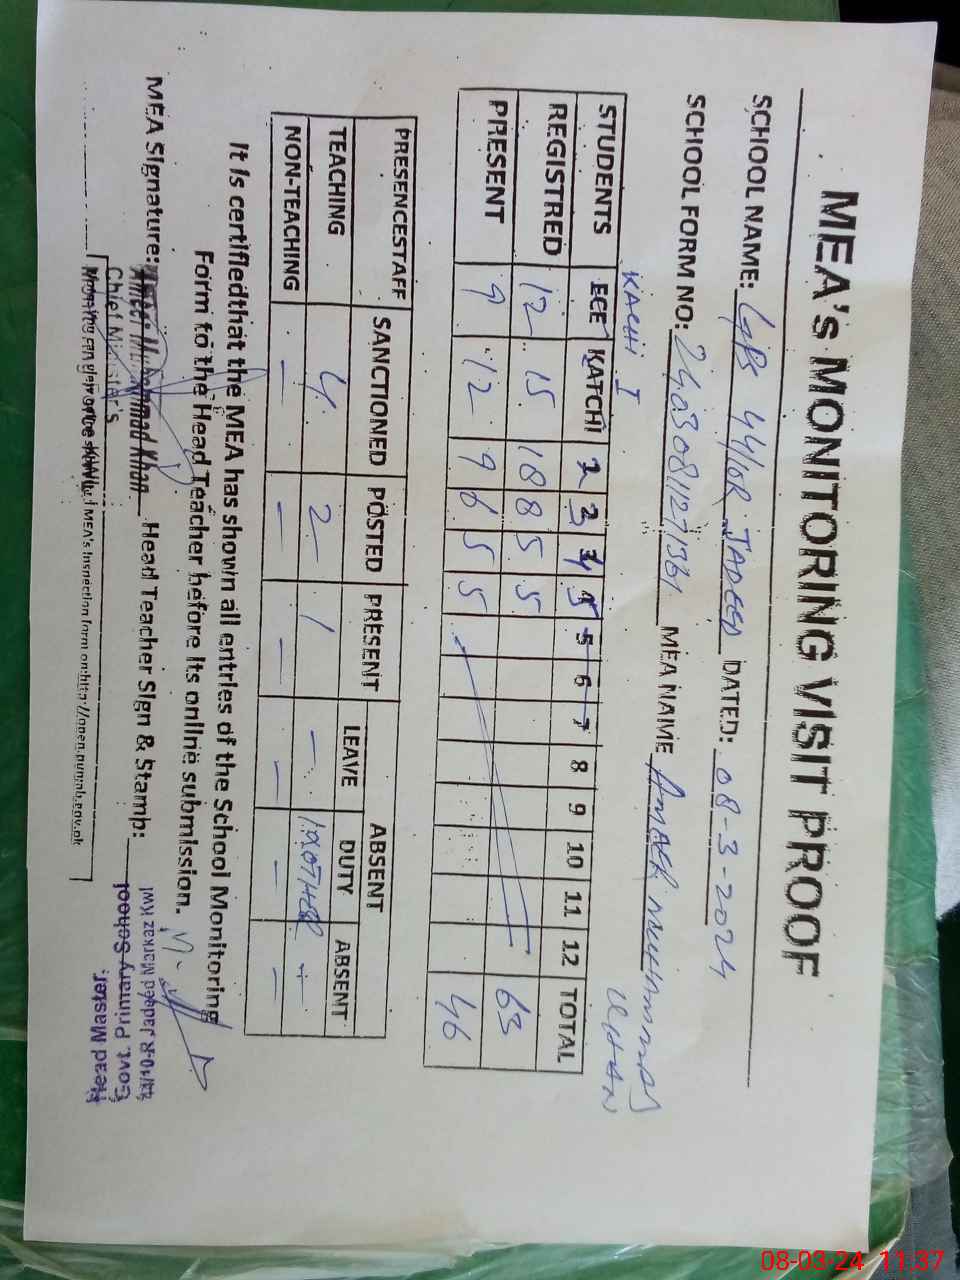 MEA's MONITORING VISIT PROOF
SCHOOL NAME: GPS 44/10R JADEED DATED: 08-3-2024
SCHOOL FORM NO: MEA NAME AMEER MUHAMMAD KHAN
KACHI I
STUDENTS ECE KATCHI 2 3 4 5 5 6 7 8 9 10 11 12 TOTAL
REGISTRED 12 15 18 8 5 5 63
PRESENT 9 12 9 6 5 5 46
PRESENCESTAFF SANCTIONED POSTED PRESENT ABSENT
LEAVE DUTY ABSENT
TEACHING 4 2 1 - 1 OTHER -
NON-TEACHING - - - - - -
It is certifiedthat the MEA has shown all entries of the School Monitoring
Form to the Head Teacher before its online submission.
MEA Signature: Muhammad Khan Head Teacher Sign & Stamp:
Chief Minister's
MEA's Inspection form on:http://open.punjab.gov.pk
Head Master
Govt. Primary School
Jadeed Markaz KWI
08-03-24 11:37